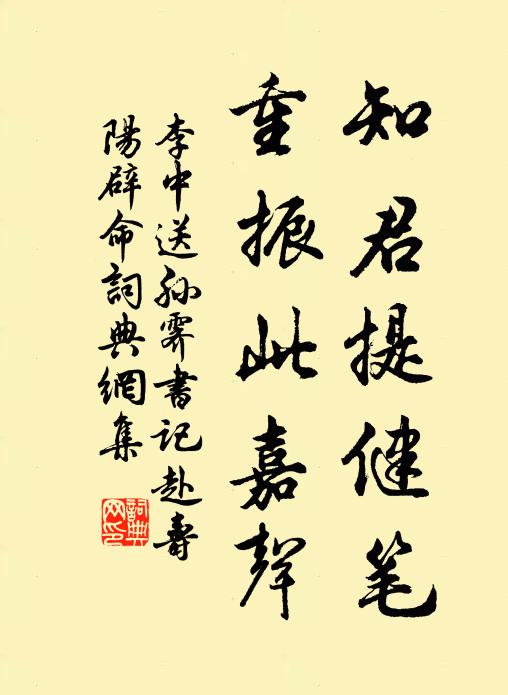 知君提健笔
重振此嘉聲
李中送孙霽書记赴壽
陽辟命詞典網集
詞典网印